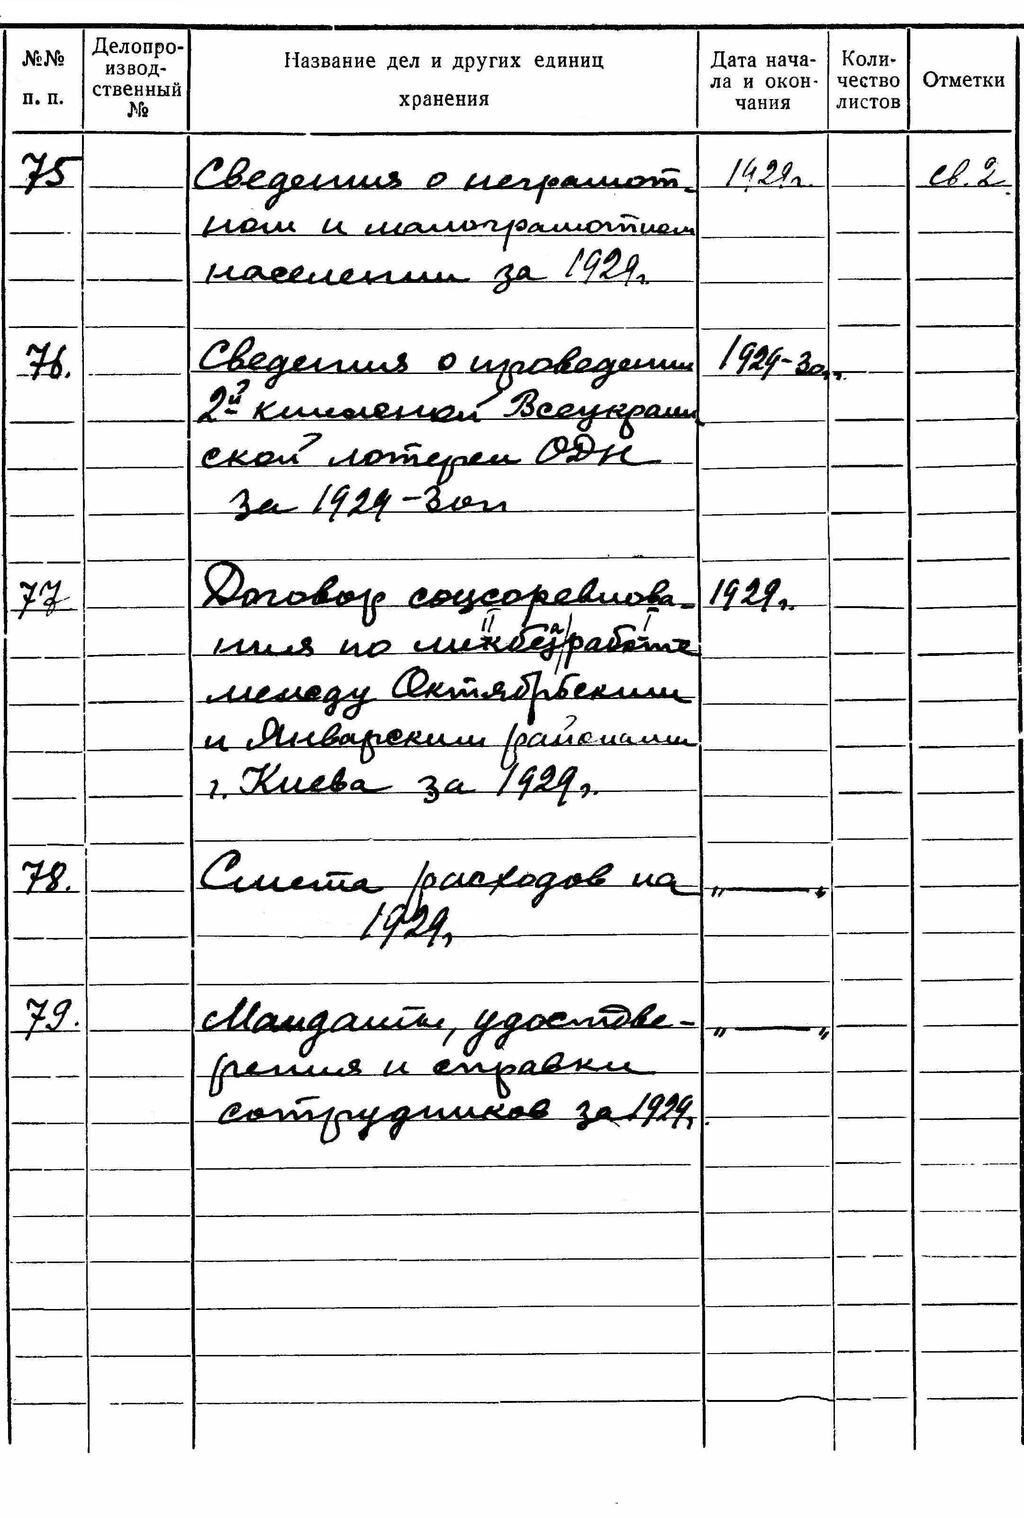 №№ п. п.
Делопро-
извод-
ственный
№
Название дел и других единиц
хранения
Дата нача-
ла и окон-
чания
Коли-
чество
листов
Отметки
75 Сведения о неграмот- 1929г. св. 2
ном и малограмотном
населении за 1929г.
76. Сведения о проведении 1929-30гг.
2й книжной Всеукраин
ской лотереи ОДН
за 1929-30гг
77 Договор соцсоревнова- 1929г.
II а I
ния по ликбез/работе
между Октябрьским
и Январским районами
г. Киева за 1929г.
78. Смета расходов на „ — "
1929г.
79. Мандаты, удостове- „ — "
рения и справки
сотрудников за 1929г.